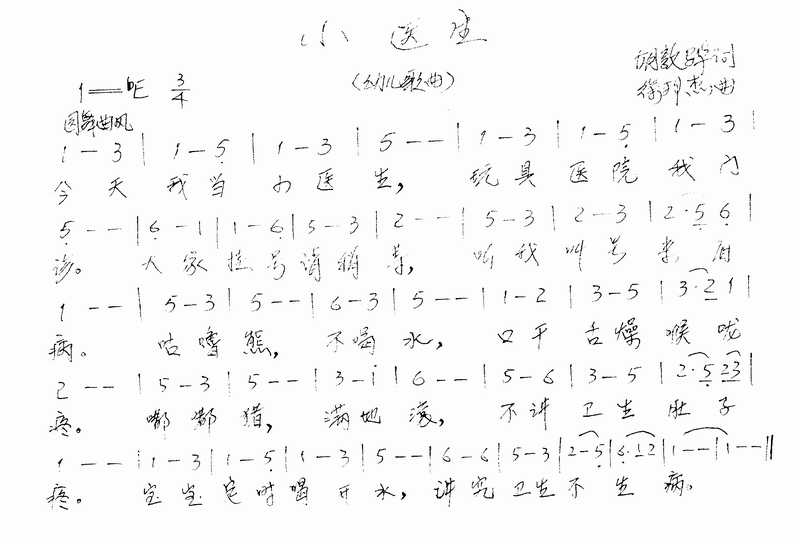 小医生
(幼儿歌曲)
胡敦骅词
徐环杰曲
1=♭E 3/4
圆舞曲风
1 - 3 | 1 - 5̣ | 1 - 3 | 5 - - | 1 - 3 | 1 - 5̣ | 1 - 3 |
今天我当小医生,玩具医院我门
5̣ - - | 6̣ - 1 | 1 - 6̣ | 5 - 3 | 2 - - | 5 - 3 | 2 - 3 | 2·5̣ 6̣ |
诊。大家挂号请稍等,听我叫号来看
1 - - | 5 - 3 | 5 - - | 6 - 3 | 5 - - | 1 - 2 | 3 - 5 | 3·2 1 |
病。咕噜熊,不喝水,口干舌燥喉咙
2 - - | 5 - 3 | 5 - - | 3 - i | 6 - - | 5 - 6 | 3 - 5 | 2·5̣ 23 |
疼。嘟嘟猪,满地滚,不讲卫生肚子
1 - - | 1 - 3 | 1 - 5̣ | 1 - 3 | 5 - - | 6 - 6 | 5 - 3 | 2 - 5̣ | 6̣·12 | 1 - - | 1 - - ‖
疼。宝宝定时喝开水,讲究卫生不生病。